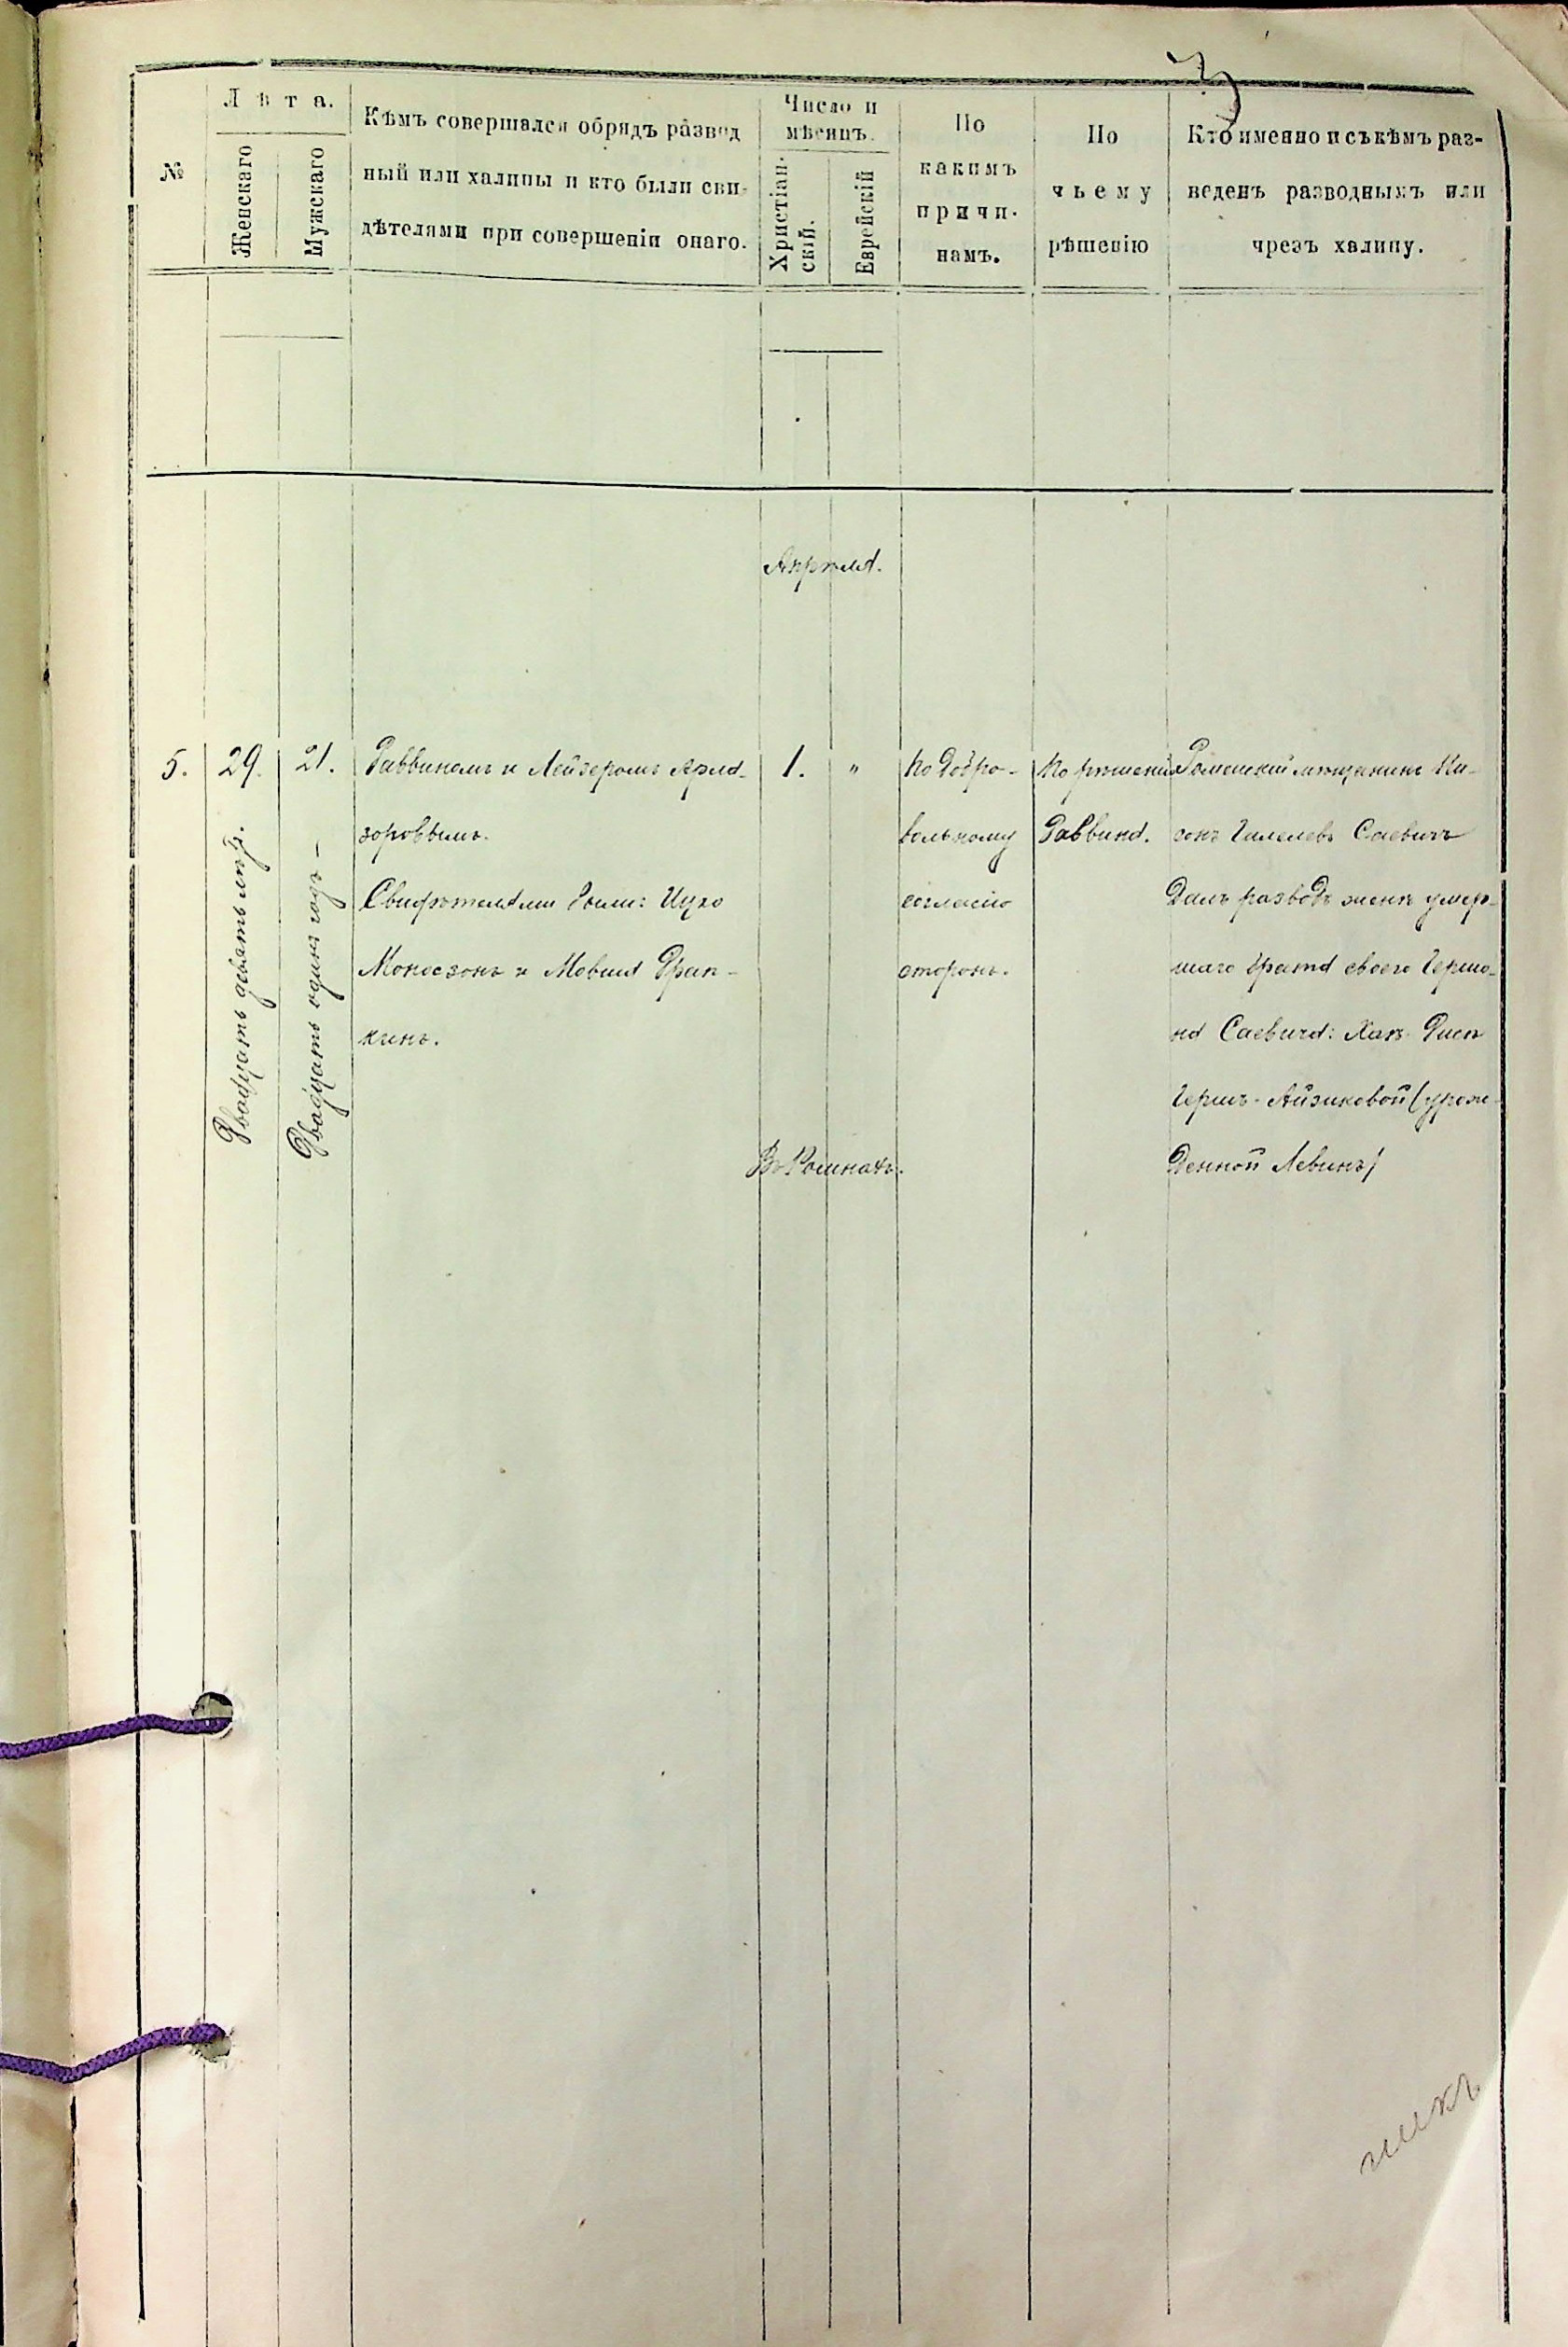 3
№
Лѣта.
Женскаго
Мужскаго
Кѣмъ совершался обрядъ развод
ный или халицы и кто были сви-
дѣтелями при совершеніи онаго.
Число и
мѣсяцъ.
Христіан-
скій.
Еврейскій
По
какимъ
причи-
намъ.
По
чьему
рѣшенію
Кто именно и съ кѣмъ раз-
веденъ разводнымъ или
чрезъ халицу.
Апрѣля.
5.
29.
Двадцать девять лѣтъ.
21.
Двадцать одинъ годъ —
Раввиномъ и Лейзеромъ Арла-
зоровымъ.
Свидѣтелями были: Ицко
Моносзонъ и Мовша Фрап-
кинъ.
1.
"
Въ Ромнахъ.
По добро-
вольному
согласію
сторонъ.
По рѣшенію
Раввина.
Роменскій мѣщанинъ Ни-
сонъ Гилелевъ Саевичъ
далъ разводъ женѣ умер-
шаго брата своего Гершо-
на Саевича: Хаѣ-Рисѣ
Гершъ-Айзиковой (урож-
денной Левинъ)